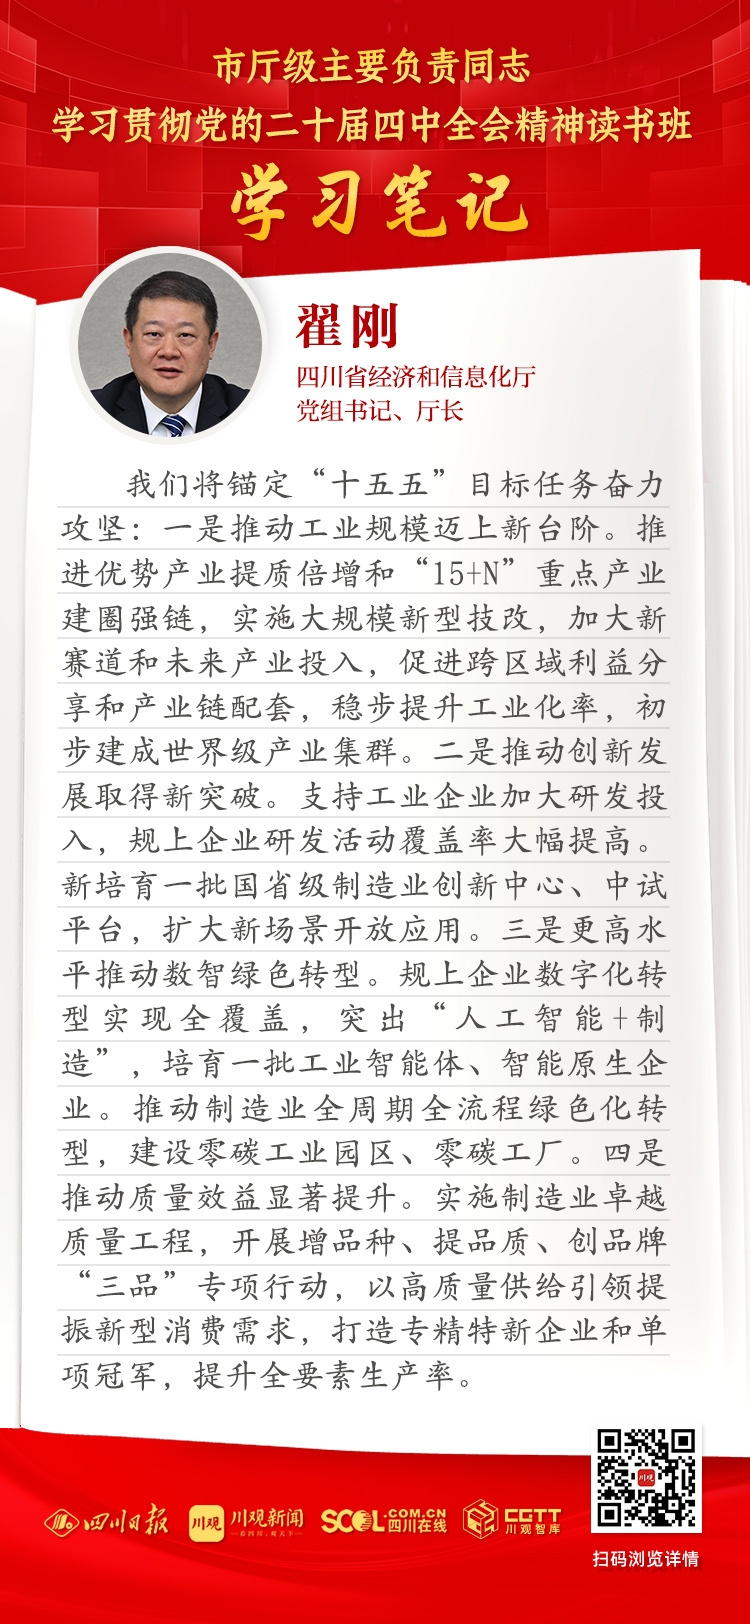 市厅级主要负责同志
学习贯彻党的二十届四中全会精神读书班
学习笔记
翟刚
四川省经济和信息化厅
党组书记、厅长
我们将锚定“十五五”目标任务奋力
攻坚：一是推动工业规模迈上新台阶。推
进优势产业提质倍增和“15+N”重点产业
建圈强链，实施大规模新型技改，加大新
赛道和未来产业投入，促进跨区域利益分
享和产业链配套，稳步提升工业化率，初
步建成世界级产业集群。二是推动创新发
展取得新突破。支持工业企业加大研发投
入，规上企业研发活动覆盖率大幅提高。
新培育一批国省级制造业创新中心、中试
平台，扩大新场景开放应用。三是更高水
平推动数智绿色转型。规上企业数字化转
型实现全覆盖，突出“人工智能+制
造”，培育一批工业智能体、智能原生企
业。推动制造业全周期全流程绿色化转
型，建设零碳工业园区、零碳工厂。四是
推动质量效益显著提升。实施制造业卓越
质量工程，开展增品种、提品质、创品牌
“三品”专项行动，以高质量供给引领提
振新型消费需求，打造专精特新企业和单
项冠军，提升全要素生产率。
川观
四川日报
川观
川观新闻
看四川，观天下
SCOL.COM.CN
四川在线
CGTT
川观智库
扫码浏览详情